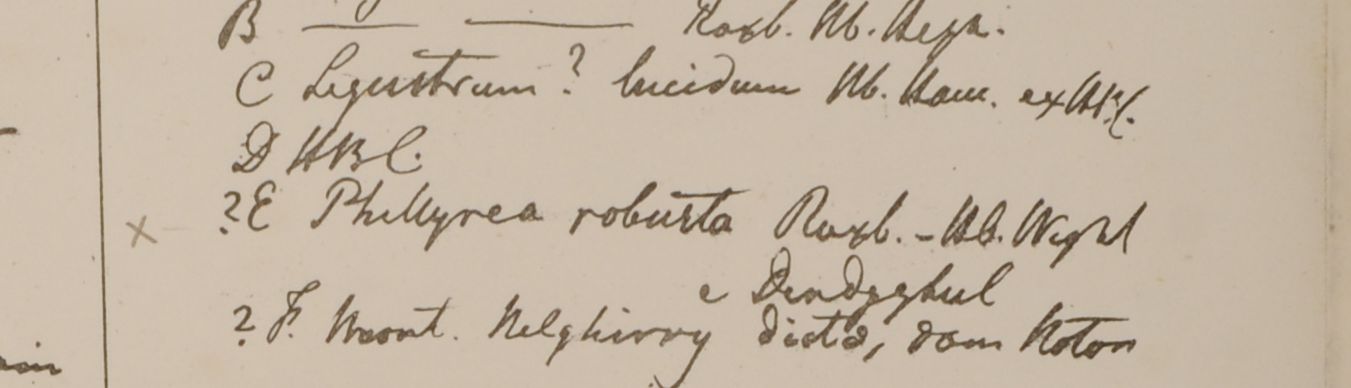 B — — Roxb. Hb. Heyn.
C Ligustrum? lucidum Hb. Ham. ex HBC.
D HBC.
?E Phillyrea robusta Roxb. - Hb. Wight
e Dendyghul
? F. Mont. Nelghirry dicta, dom Noton